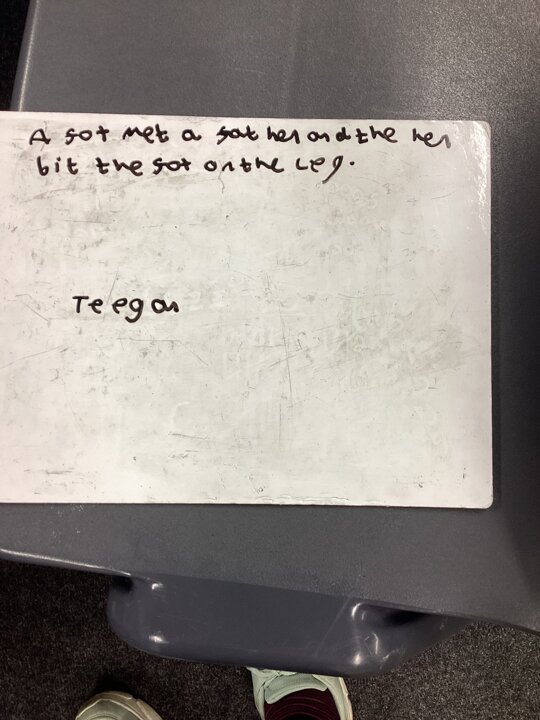 A fox met a fat hen and the hen
bit the fox on the Leg.
Teegan